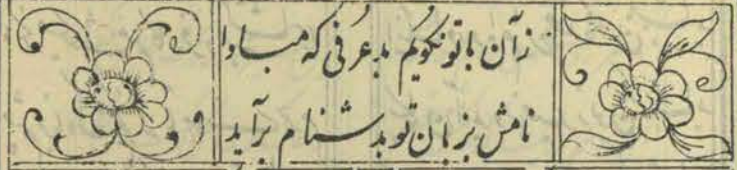 زآن باتو نکویم بد عرفی که مبادا
نامش بزبان تو بدشنام برآید